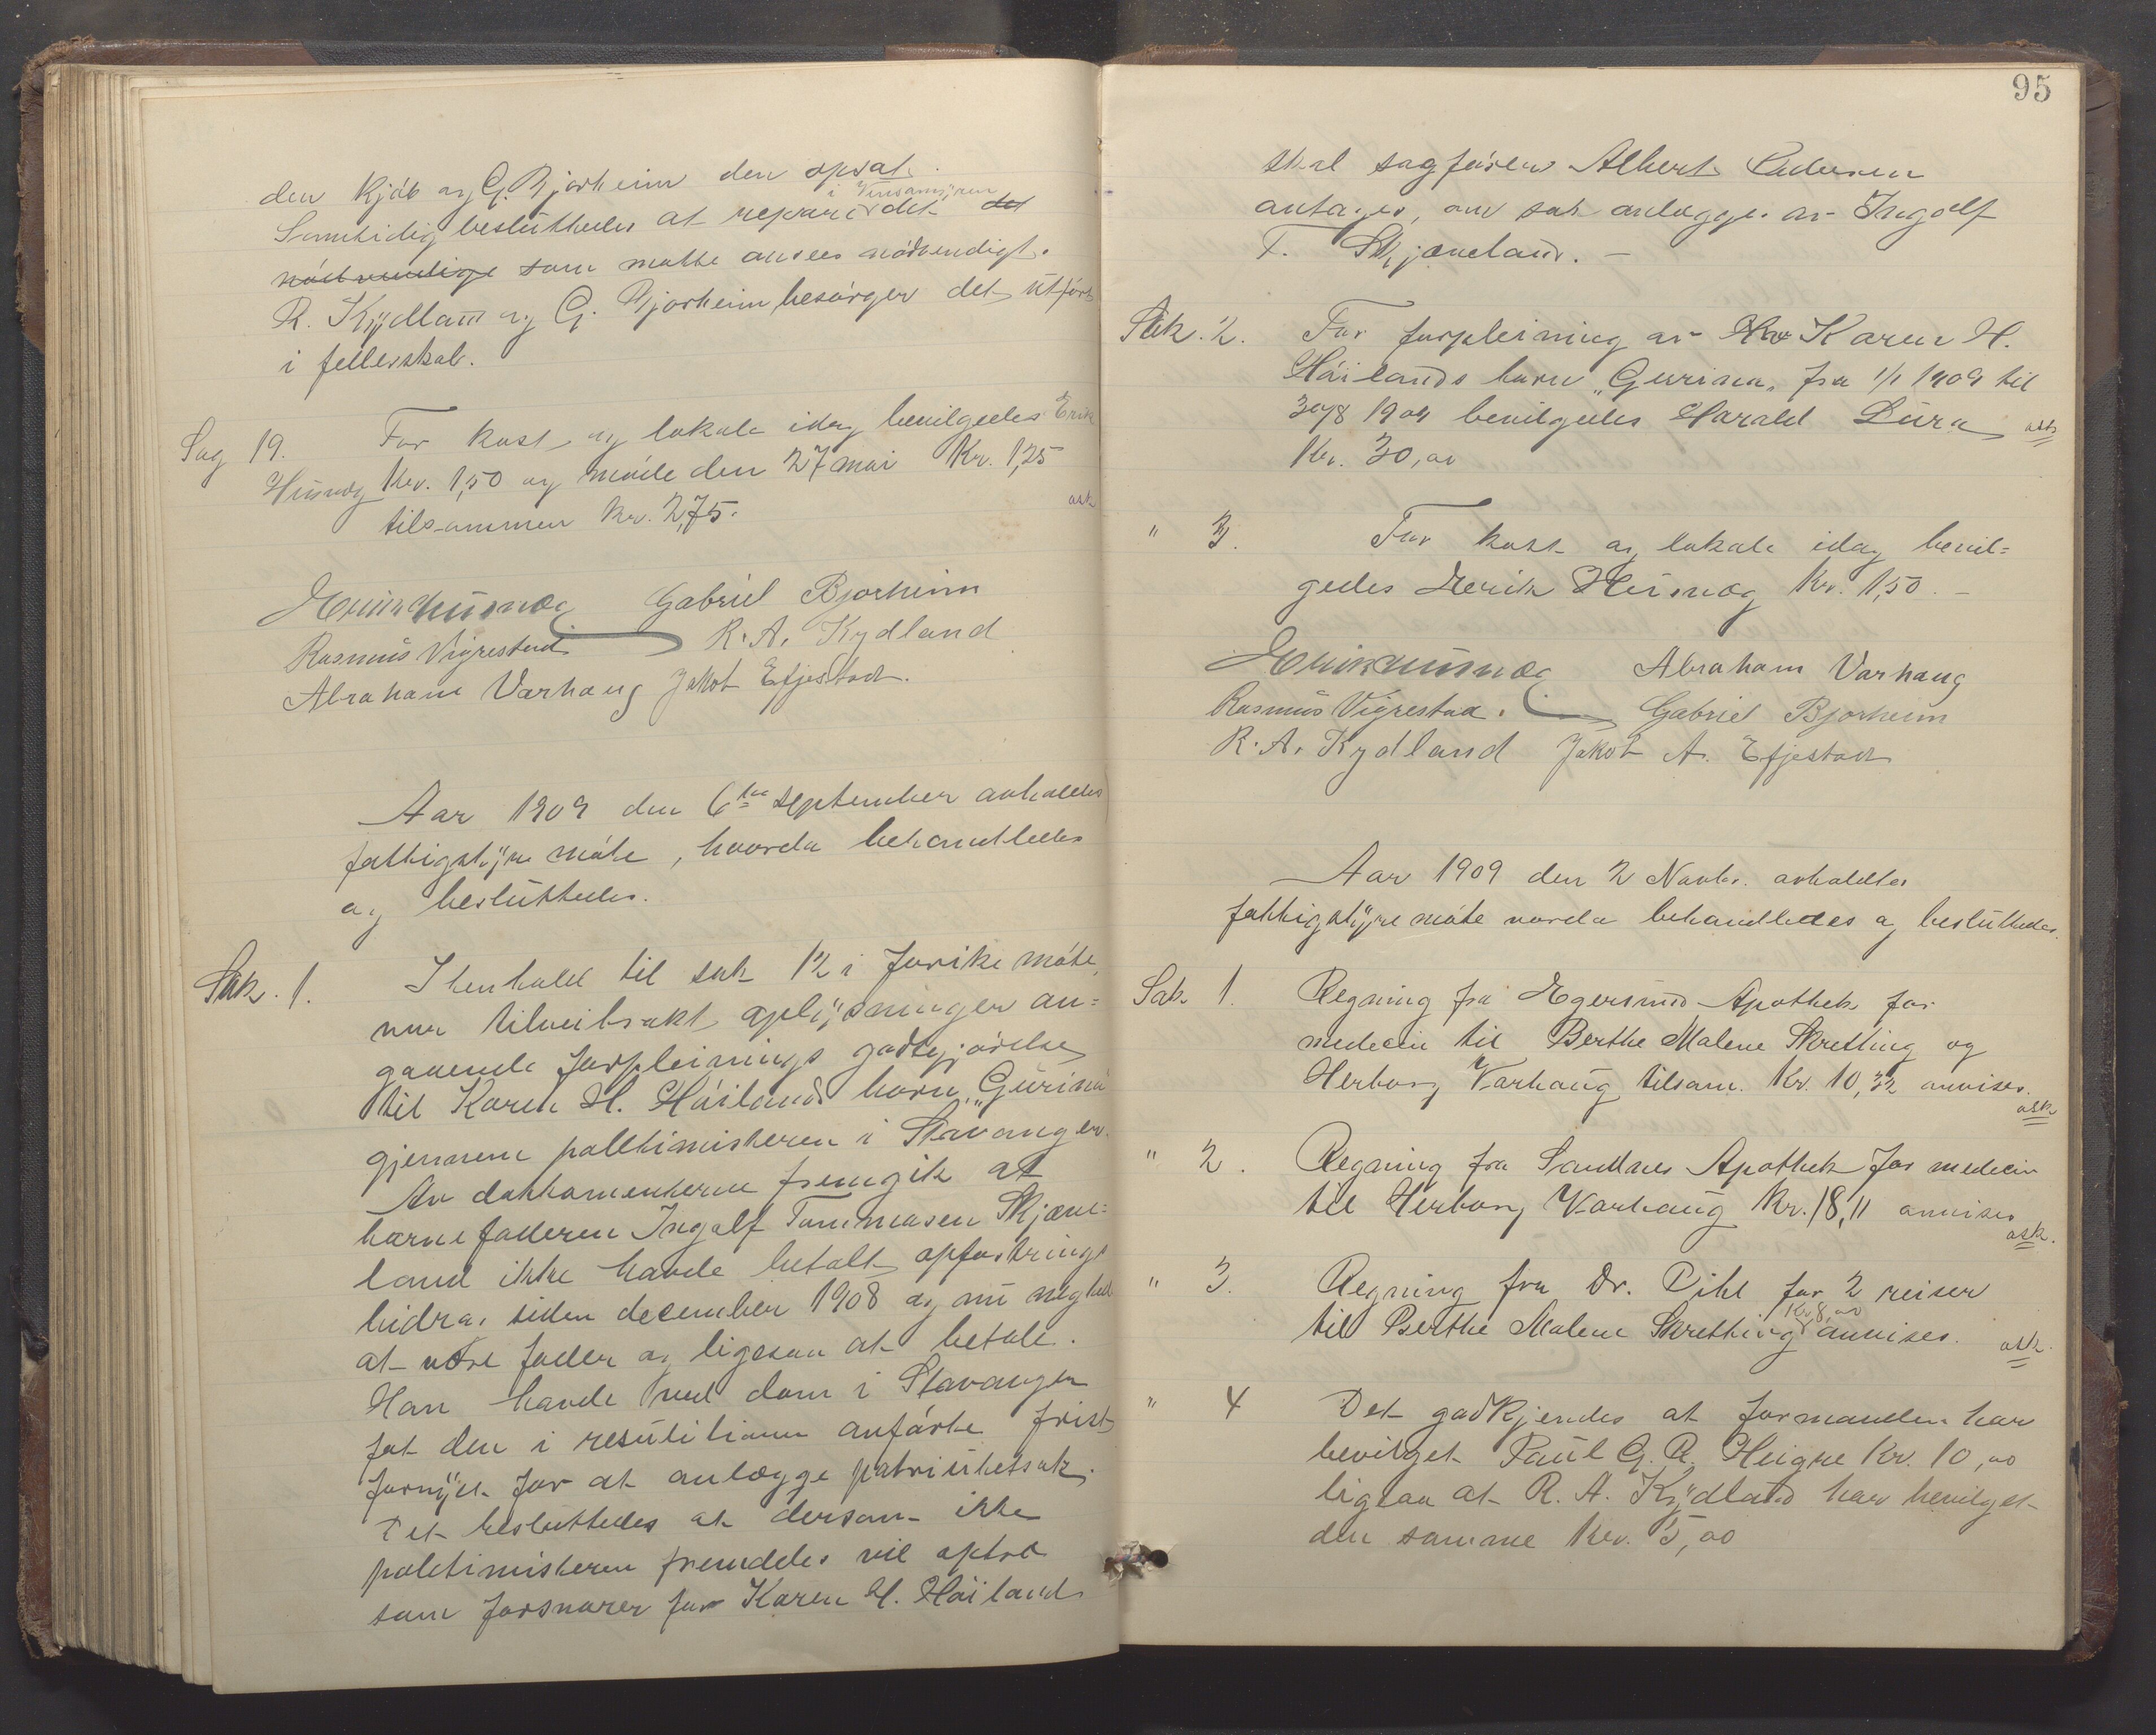 den kjøb og G. Bjorheim den opsat.
Samtidig besluttedes at reparere det i Vinsamyren det
nødvendige som maatte ansees nødvendigt.
R. Kydland og G. Bjorheim besørger det utført
i fellesskab.
Sag 19. For kost og lokale idag bevilgedes Erik
Husvæg Kr. 1,50 og møde den 27 mai Kr. 1,25
tilsammen kr. 2,75.
ask
Erik Husvæg Gabriel Bjorheim
Rasmus Vigrestad R. A. Kydland
Abraham Varhaug Jakob Efjestad.
Aar 1909 den 6te september avholdtes
fattigstyre møte, hvorda behandledes
og besluttedes.
Sak. 1. I henhold til sak 12 i forike møte,
var tilveibrakt oplysninger an=
gaaende forpleinings godtgjørelse
til Karen H. Høilands barn „Gurina"
gjennem politimesteren i Stavanger.
Av dokkomenterne fremgik at
barnefaderen Ingolf Tommasen Skjæve=
land ikke havde betalt opfostrings
bidrag siden december 1908 og nu negted
at være fader og ligesaa at betale.
Han havde ved dom i Stavanger
fåt den i resulitionen anførte frist
fornyet for at anlægge patriutetsak.
Det besluttedes at dersom ikke
politimisteren fremdeles vil optræ
som forsvarer for Karen H. Høiland
95
skal sagfører Albert Pedersen
antages, om sak anlægges av Ingolf
T. Skjæveland. –
Sak. 2. For forpleining av Karen H.
Høilands barn „Gurina" fra 1/1 1909 til
30/8 1909 bevilgedes Harald Lura
ask
Kr. 30,00
" 3. For kost og lokale idag bevil=
gedes Herik Husvæg Kr. 1,50. –
Erik Husvæg Abraham Varhaug
Rasmus Vigrestad. Gabriel Bjorheim
R. A. Kydland Jakob A. Efjestad
Aar 1909 den 2 Novbr. avholdtes
fattigstyremøte vorda behandledes og besluttedes.
Sak 1. Regning fra Egersund Apothek for
medecin til Berthe Malene Skretting og
Herborg Varhaug tilsam. Kr. 10,32 anvises.
ask
" 2. Regning fra Sandnes Apothek for medecin
til Herborg Varhaug Kr. 18,11 anvises
ask.
" 3. Regning fra Dr. Pihl for 2 reiser
til Berthe Malene Skretting Kr 8,00 anvises.
ask.
" 4 Det godkjendes at formanden har
bevilget Paul G. R. Heigre Kr. 10,00
ligesaa at R. A. Kydland har bevilget
den samme Kr. 5,00